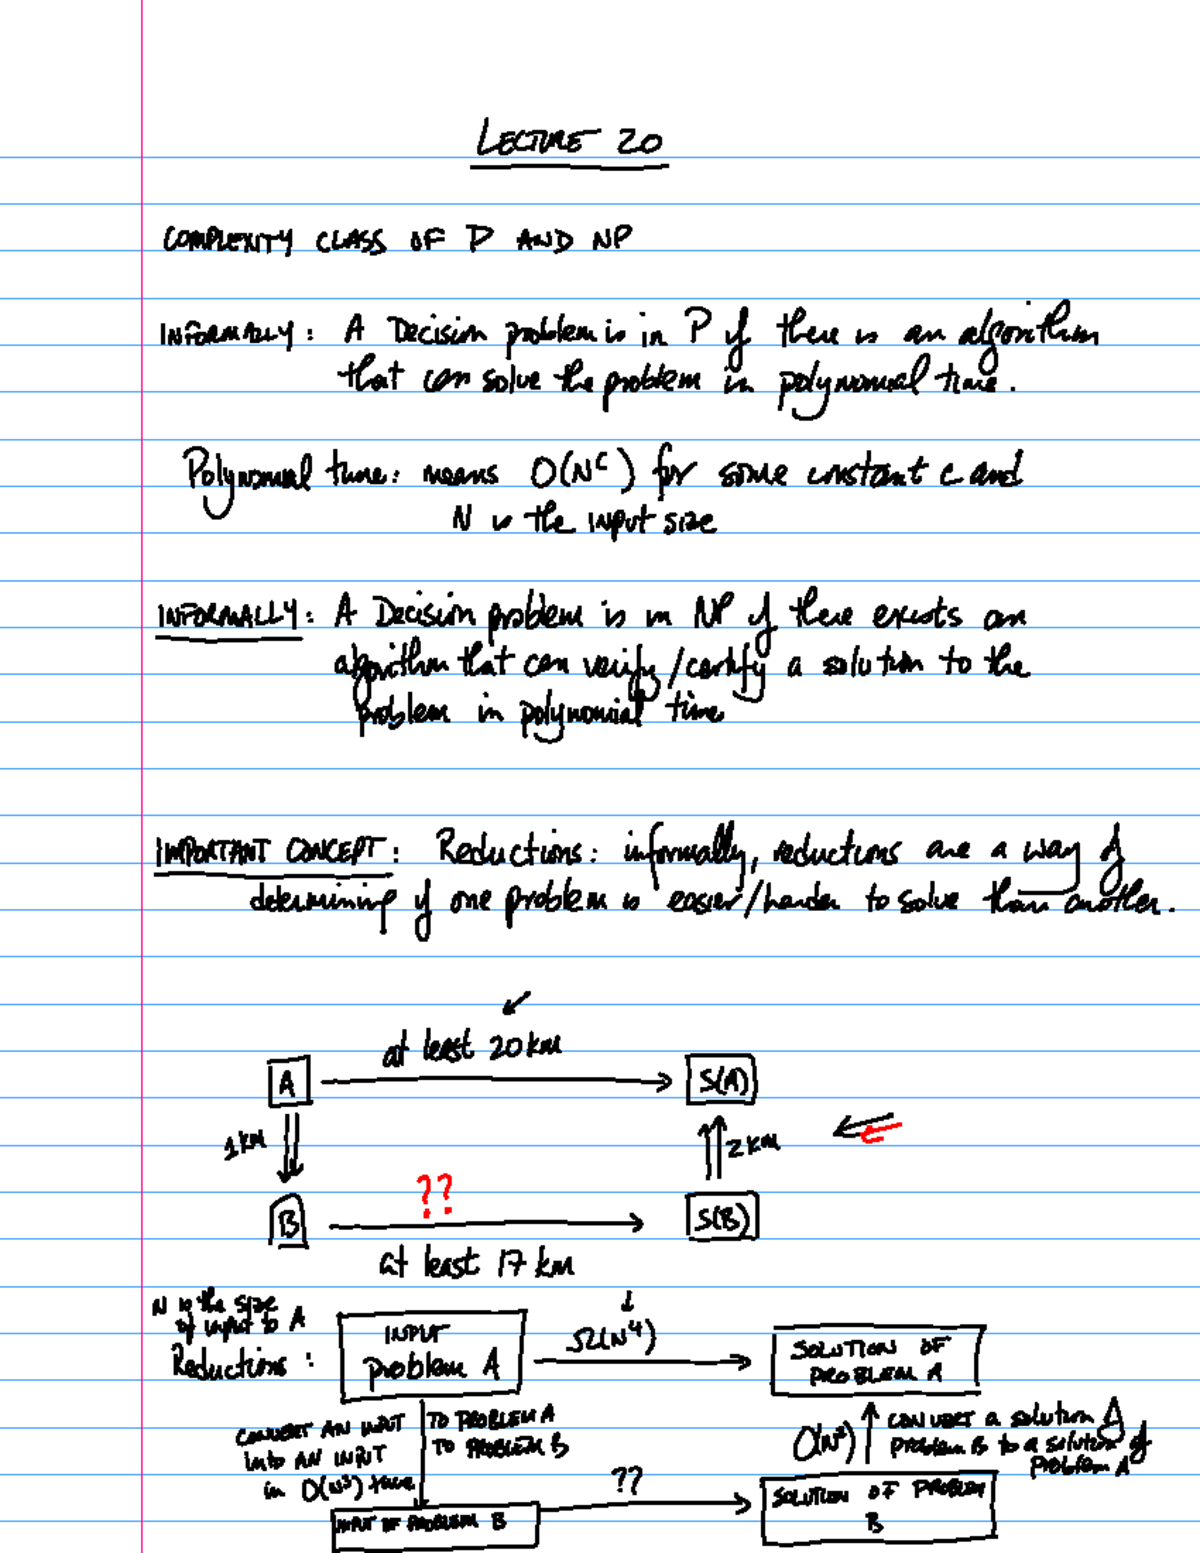 LECTURE 20
COMPLEXITY CLASS OF P AND NP
INFORMALLY: A Decision problem is in P if there is an algorithm
that can solve the problem in polynomial time.
Polynomial time: means O(N^c) for some constant c and
N is the input size
INFORMALLY: A Decision problem is in NP if there exists an
algorithm that can verify/certify a solution to the
problem in polynomial time
IMPORTANT CONCEPT: Reductions: informally, reductions are a way of
determining if one problem is easier/harder to solve than another.
at least 20km
A S(A)
1km 2km
??
B S(B)
at least 17 km
N is the size
of input to A
Reductions:
INPUT
problem A
Ω(N^4)
SOLUTION OF
PROBLEM A
CONVERT AN INPUT TO PROBLEM A
into AN INPUT TO PROBLEM B
in O(N^3) time
convert a solution of
problem B to a solution of
problem A
??
INPUT OF PROBLEM B
SOLUTION OF PROBLEM
B